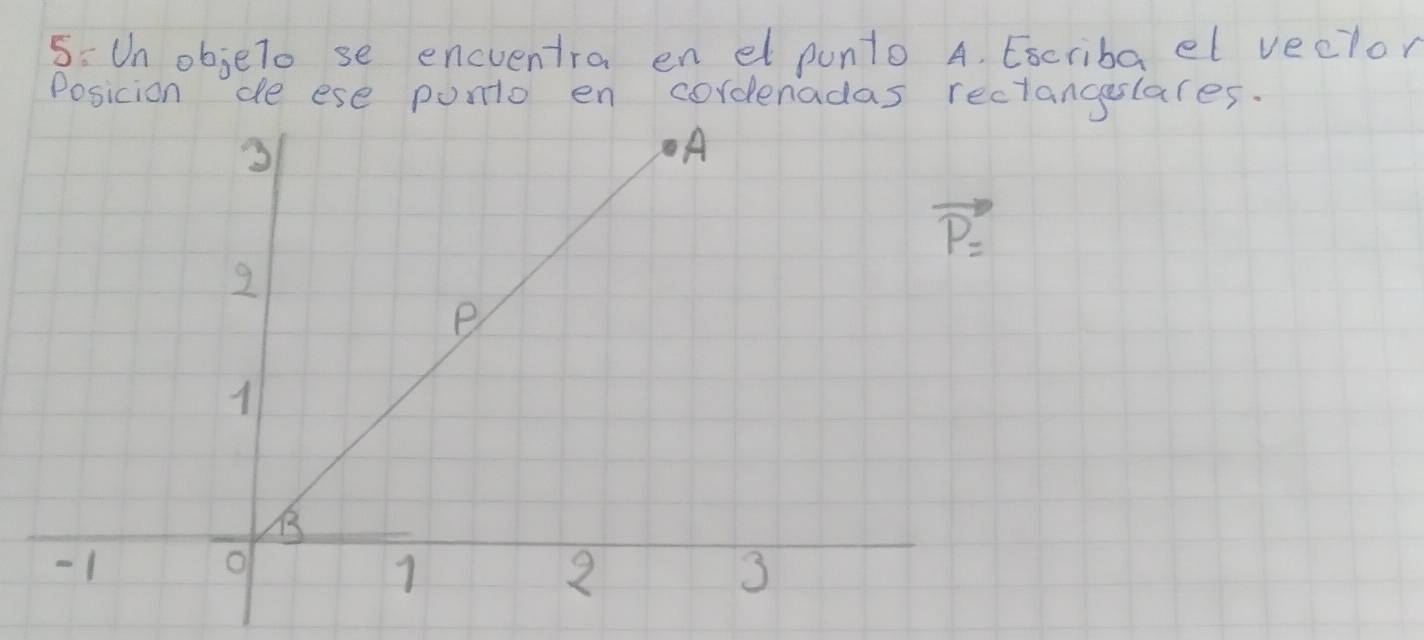 5: Un objeto se encuentra en el punto A. Escriba el vector
Posicion de ese punto en cordenadas rectangulares.
3
A
P=
2
P
1
B
-1 0 1 2 3